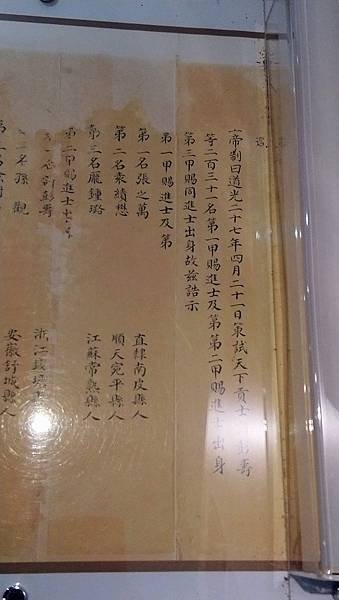 帝制曰道光二十七年四月二十一日策試天下貢士許彭壽
等二百三十一名第一甲賜進士及第第二甲賜進士出身
第三甲賜同進士出身故茲誥示
第一甲賜進士及第
第一名張之萬 直隸南皮縣人
第二名袁績懋 順天宛平縣人
第三名龐鍾璐 江蘇常熟縣人
第二甲賜進士出身
許彭壽 浙江錢塘
名孫觀 安徽舒城縣人